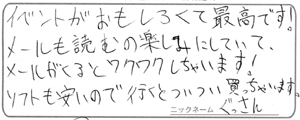 イベントがおもしろくて最高です!
メールも読むの楽しみにしていて、
メールがくるとワクワクしちゃいます!
ソフトも安いので行くとついつい買っちゃいます。
ニックネーム ぐっさん